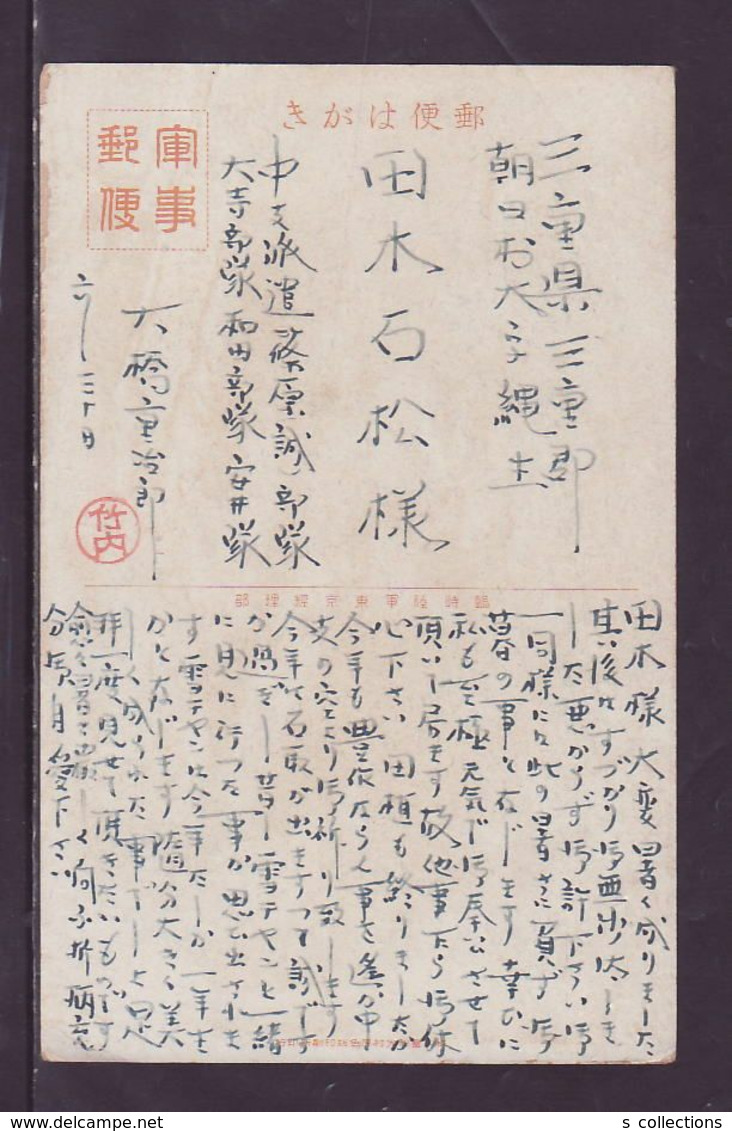 郵便はがき
軍事郵便
三重県三重郡
朝日村大字縄生
田木石松様
中支派遣篠原誠一部隊
大寺部隊和田部隊安井隊
大橋重治郎
六ー三十日
竹内
臨時陸軍東京経理部
田木様大変暑く成りました
其後はすつかり御無沙汰しま
した悪からず御許下さい御
一同様には此の暑さに負ず御
暮の事と存じます幸ひに
私も至極元気で御奉公させて
頂いて居ます故他事ながら御休
心下さい田植も終りましたか
今年も豊作ならん事を遙か中
支の空より御祈り致します
今年は石取が出ますつて
が過ぎし昔し雪チヤンと一緒
に見に行つた事が思ひ出されま
す雪チヤンは今年たしか一年生
かと存じます随分大きく美
しく成られた事でしよう
一度見せて頂きたいものです
愈々暑さ厳しく向ふ折柄充
分御自愛下さい